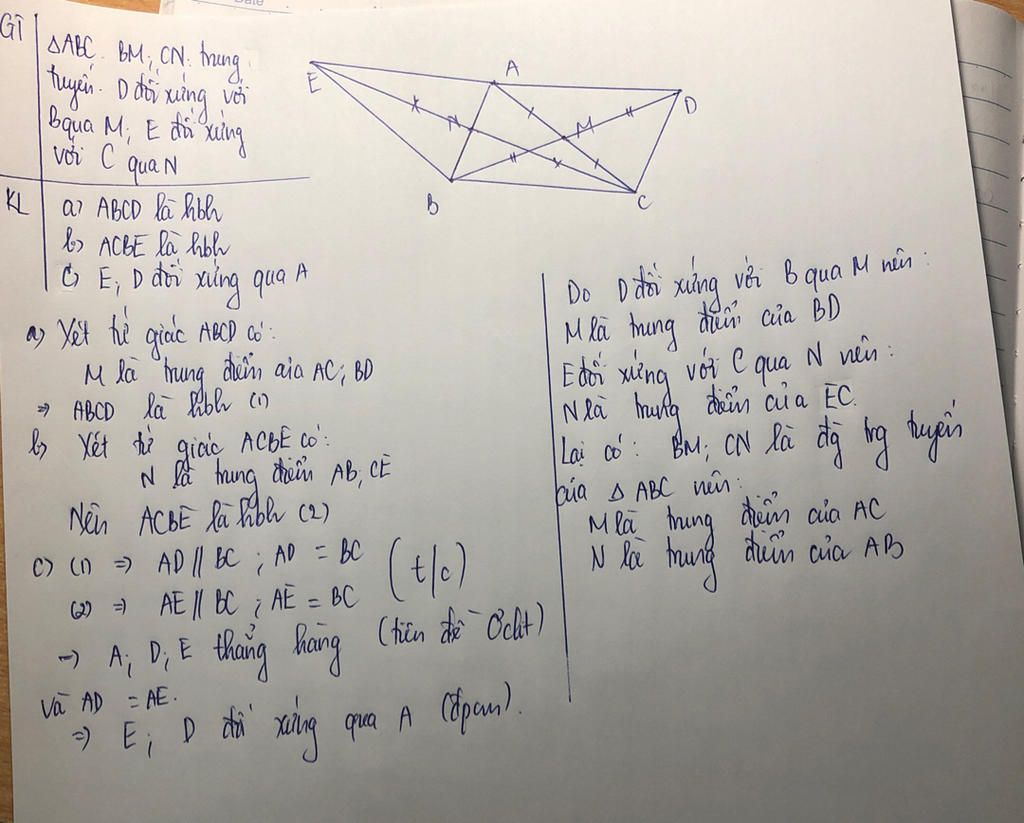 Date
GT
ΔABC. BM; CN: trung
tuyến. D đối xứng với
B qua M; E đối xứng
với C qua N
KL
a) ABCD là hbh
b) ACBE là hbh
c) E; D đối xứng qua A
E
A
D
N
M
B
C
a) Xét tứ giác ABCD có:
M là trung điểm của AC; BD
⇒ ABCD là hbh (1)
b) Xét tứ giác ACBE có:
N là trung điểm AB; CE
Nên ACBE là hbh (2)
c) (1) ⇒ AD // BC ; AD = BC
(2) ⇒ AE // BC ; AE = BC
(t/c)
⇒ A; D; E thẳng hàng (tiên đề Ơclit)
Và AD = AE.
⇒ E; D đối xứng qua A (đpcm).
Do D đối xứng với B qua M nên:
M là trung điểm của BD
E đối xứng với C qua N nên:
N là trung điểm của EC.
Lại có: BM; CN là đg trg tuyến
của Δ ABC nên:
M là trung điểm của AC
N là trung điểm của AB